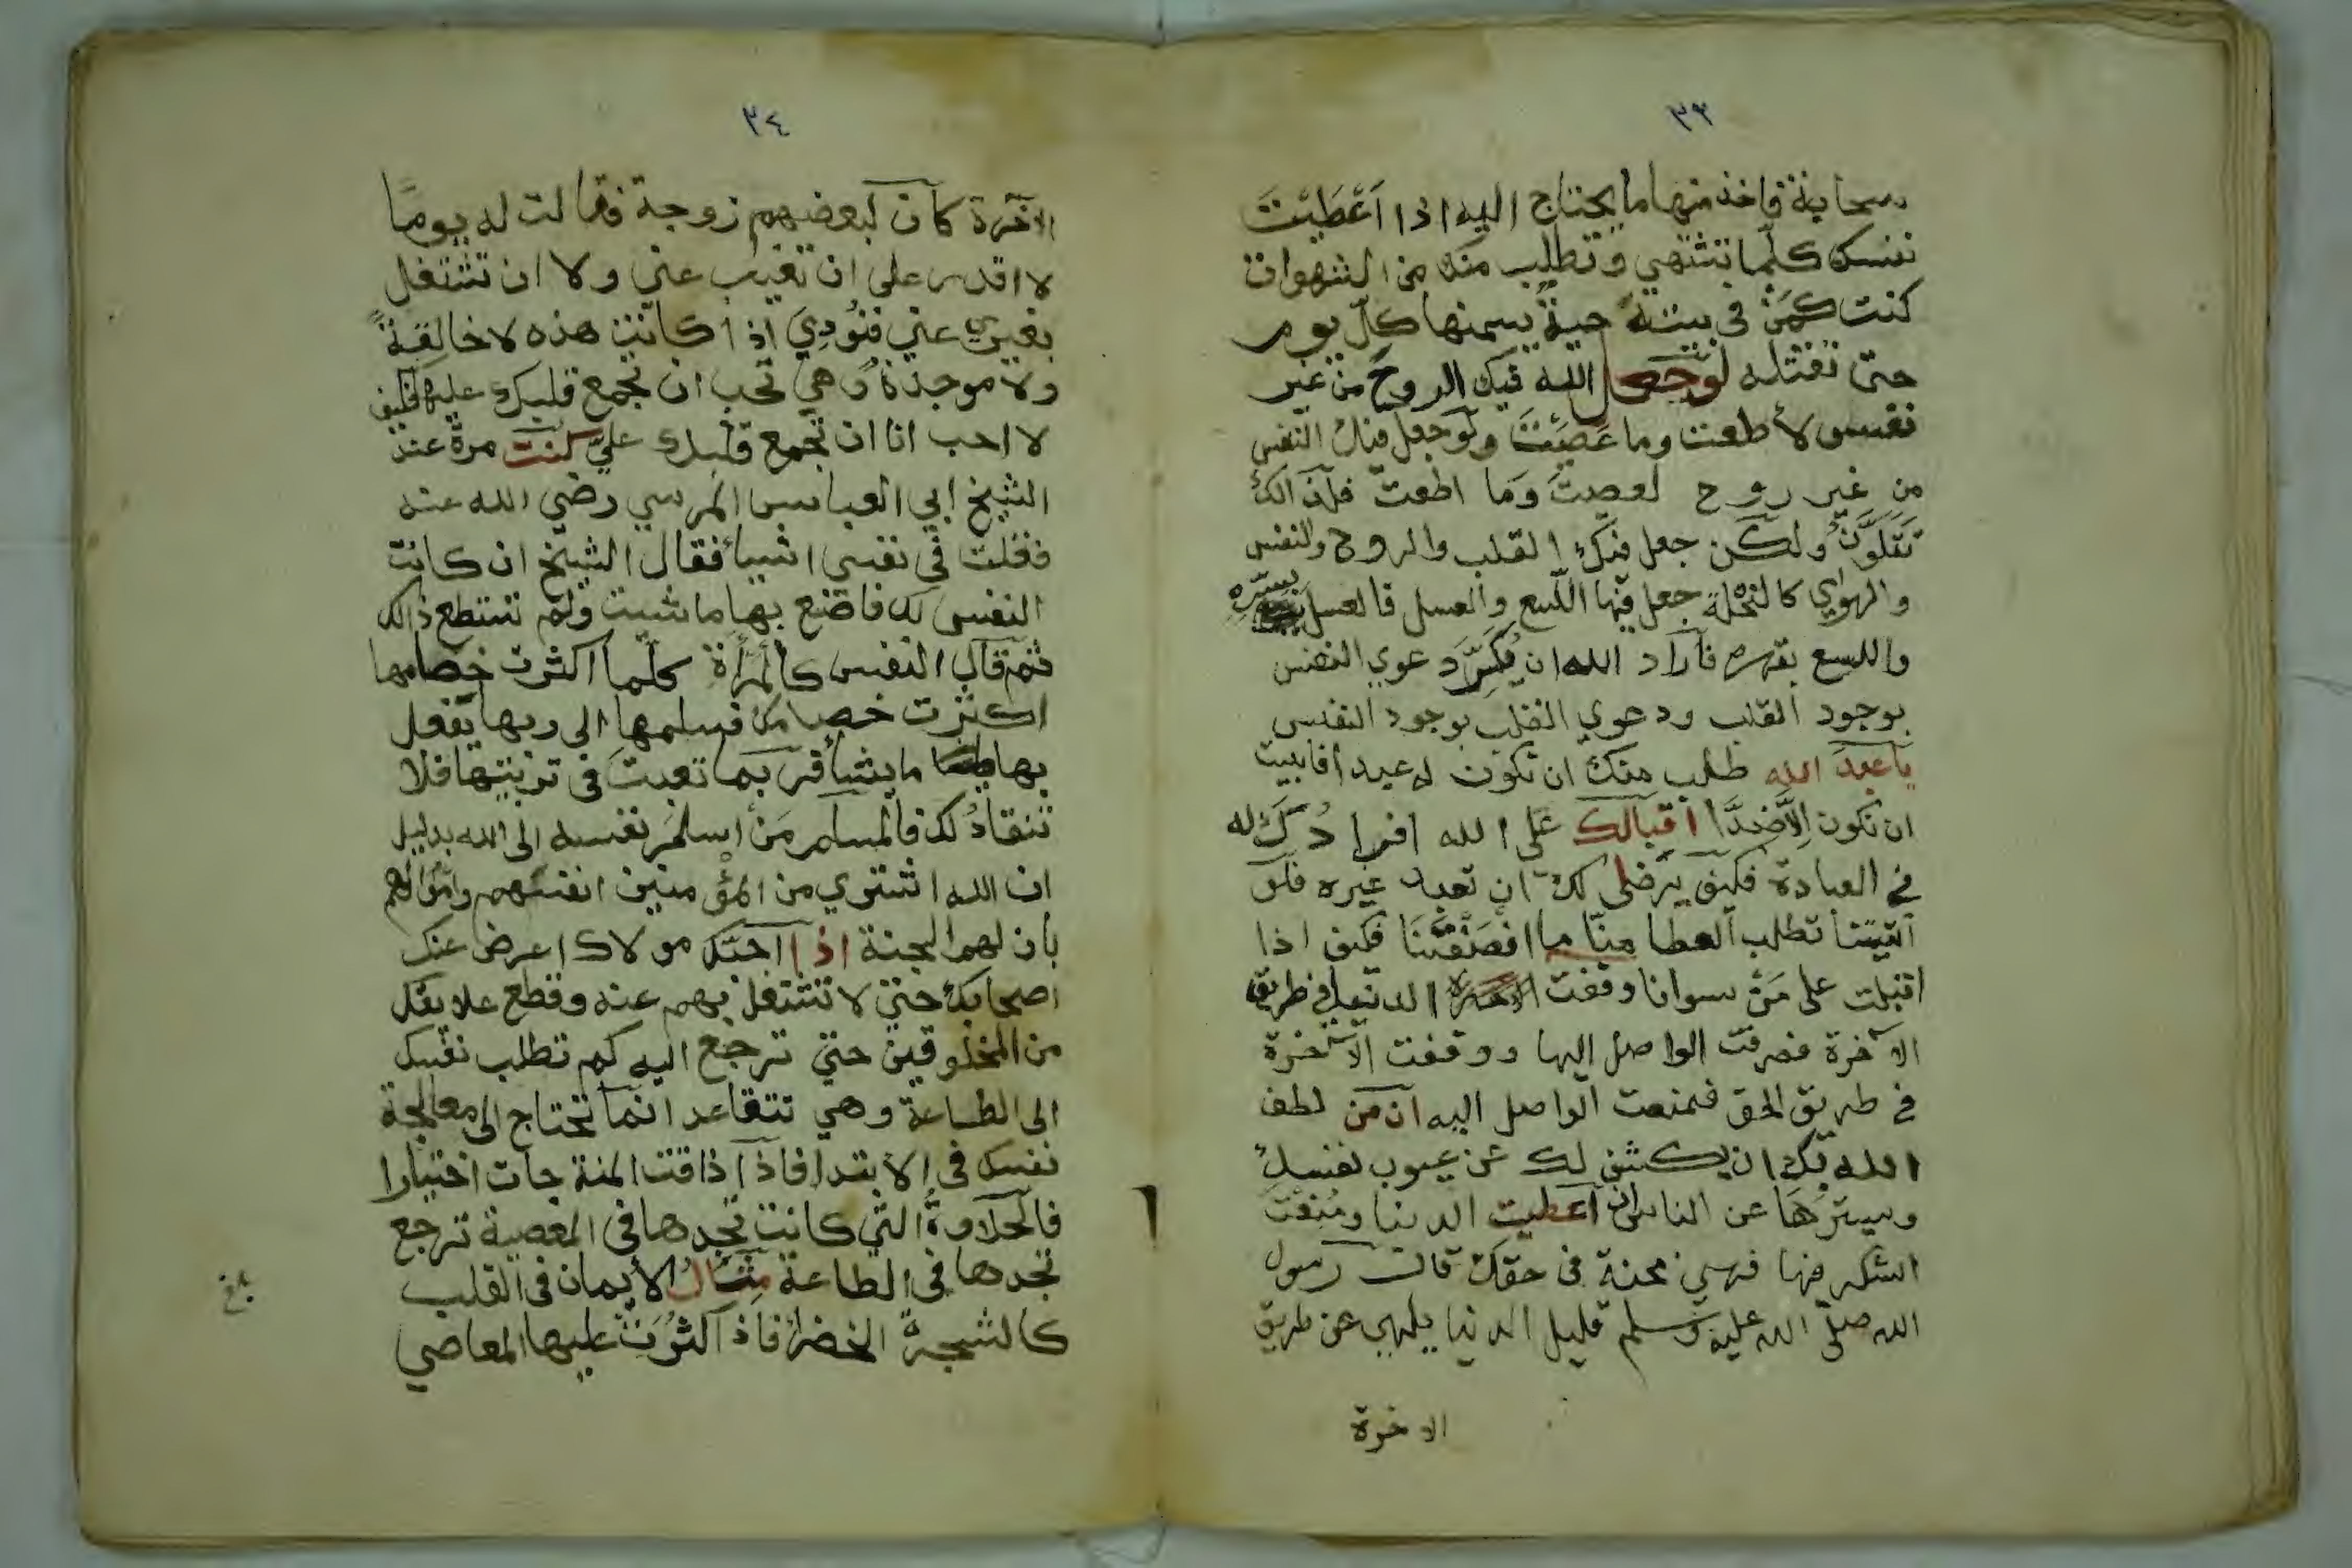 ٣٣
سحابة فاخذ منها ما يحتاج اليه اذا اَعْطَيْتَ
نفسك كلّما تشتهي وتطلب منك من الشهوات
كنت كمَنْ في بيته حيةٌ يسمنها كلّ يوم
حتى تقتله لوجعل الله فيك الروح من غير
نفس لأطعت وما عَصَيْتَ ولوجعل فيك النفس
من غير روح لعصيتَ وَمَا اطعتَ فلذالك
تَتَلَوَّنُ ولكن جعل فيك القلب والروح والنفس
والهوي كالنحلة جعل فيها اللسع والعسل فالعسل بِبِرّهِ
واللسع بقهره فأراد الله ان يُكَسِّرَ دعوي النفس
بوجود القلب ودعوي القلب بوجود النفس
يا عبدَ الله طلب منك ان تكون له عبدا فابيت
ان تكون اِلاَّضِدَّا اقبالك عَلَى الله افرادُكَ له
في العبادة فكيف يَرضى لك ان تعبد غيره فلو
اَتيتنا تطلب العطا منّا ما انصَفْتَنَا فكيف اذا
اقبلت على مَنْ سوانا وقفت الدنيا في طريق
الآخرة فصرفت الواصل اليها ووقفت الآخرة
في طريق الحق فمنعت الواصل اليه ان من لطف
الله بك ان يكشف لك عن عيوب نفسك
وسيترُهَا عن الناس ان اعطيت الدنيا ومُنِعْتَ
الشكر فيها فهي محنة في حقك قال رسول
الله صلّى الله عليه وسلم قليل الدنيا يلهي عن طريق
الاخرة
٣٤
الآخرة كان لبعضهم زوجة فقالت له يومًا
لا اقدر على ان تغيب عني ولا ان تشتغل
بغيري عني فنُودِيَ اذا كانت هذه لا خالقةً
ولا موجدةً وهي تحب ان تجمع قلبك عليها فكيف
لا احب انا ان تجمع قلبك عليَّ كنت مرة عند
الشيخ ابي العباس المرسي رضي الله عنه
فقلت في نفسي اشيأ فقال الشيخ ان كانت
النفس لك فاصنع بها ما شيت ولم تستطع ذالك
ثم قال النفس كالمرأة كلّما اكثرت خصامها
اكثرت خصامك فسلمها الى ربها يَفعل
بها ما يشأ فربما تعبتَ في تربيتها فلا
تنقادُ لك فالمسلم مَنْ اسلمَ نفسه الى الله بدليل
ان الله اشتري من المؤمنين انفسَهم واموَالهم
بأن لهم الجنة اذا احبّك مولاك اعرض عنك
اصحابك حتى لا تشتغل بهم عنه وقطع علايقك
من المخلوقين حتى ترجع اليه كم تطلب نفسك
الى الطاعة وهي تتقاعد انما تحتاج الى معالجة
نفسك في الأبتدا فاذا ذاقت المنة جات اختيارا
فالحلاوةُ التي كانت تجدها في المعصية ترجع
تجدها في الطاعة مثالُ الأيمان في القلب
كالشجرة الخضرا فاذا كثُرتْ عليها المعاصي
بلغ